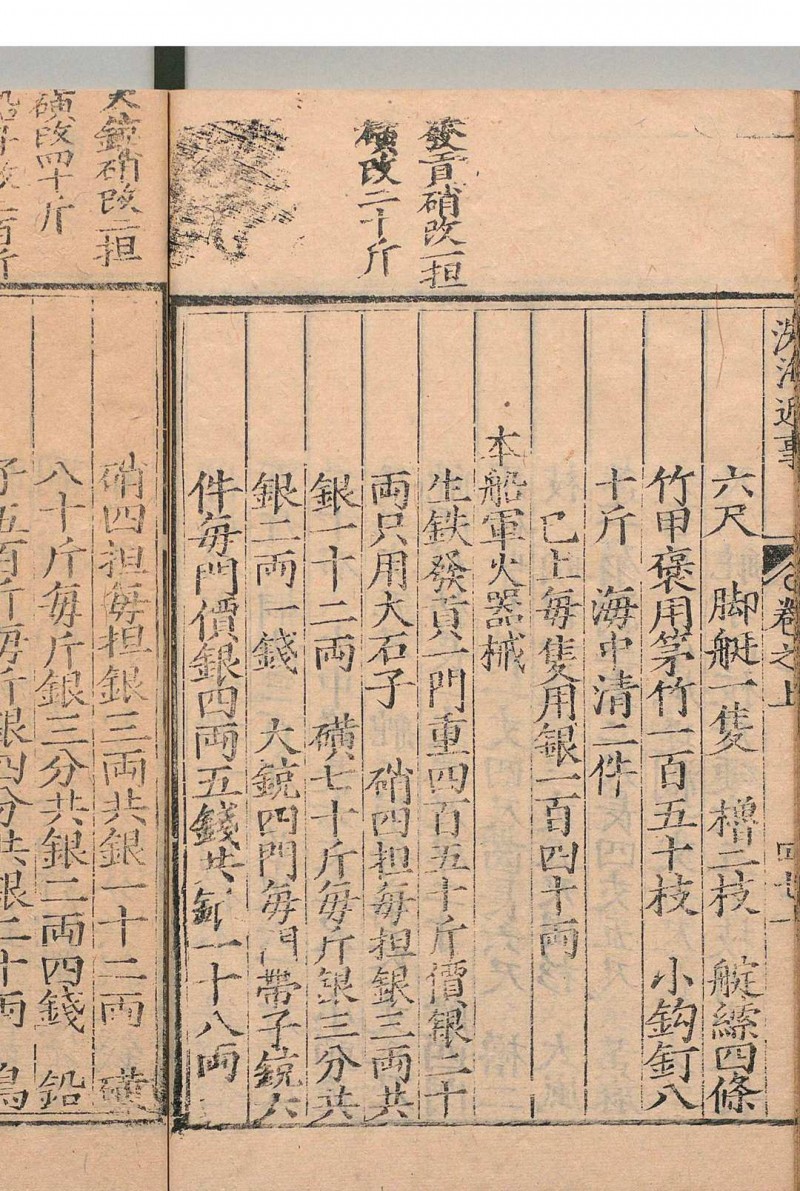 洗海近事
卷之上
發貢硝改一担
磺改二十斤
六尺　脚艇一隻　櫓二枝　艇繚四條
竹甲褒用箏竹一百五十枝　小鈎釘八
十斤　海中清二件
已上每隻用銀一百四十両
本船軍火器械
生鉄發貢一門重四百五十斤價銀二十
両只用大石子　硝四担每担銀三両共
銀一十二両　磺七十斤每斤銀三分共
銀二両一錢　大銃四門每門帶子銃六
件每門價銀四両五錢共銀一十八両
大銃硝改二担
磺改四十斤
硝四担每担銀三両共銀一十二両　磺
八十斤每斤銀三分共銀二両四錢　鉛
子五百斤每斤銀四分共銀二十両　鳥